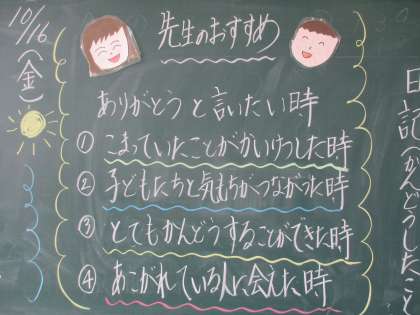 10/16(金)
先生のおすすめ
ありがとうと言いたい時
① こまっていたことがかいけつした時
② 子どもたちと気もちがつながった時
③ とてもかんどうすることができた時
④ あこがれている人に会えた時
日記(かんどうしたこと